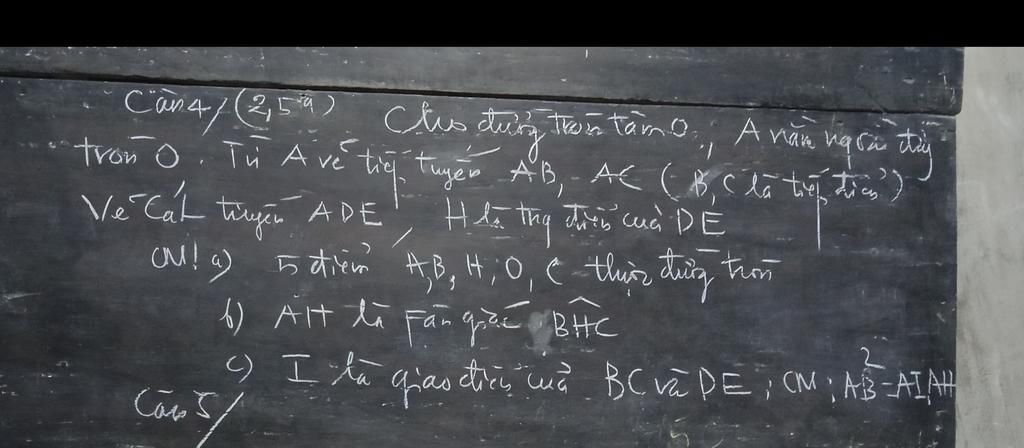 Câu 4/ (2,5đ) Cho đường tròn tâm O, A nằm ngoài đường
tròn O. Từ A vẽ tiếp tuyến AB, AC (B, C là tiếp điểm)
Vẽ Cát tuyến ADE, H là trung điểm của DE
CM! a) 5 điểm A, B, H, O, C thuộc đường tròn
b) AH là Fân giác BHC
c) I là giao điểm của BC và DE; CM: AB² = AI.AH
Câu 5/